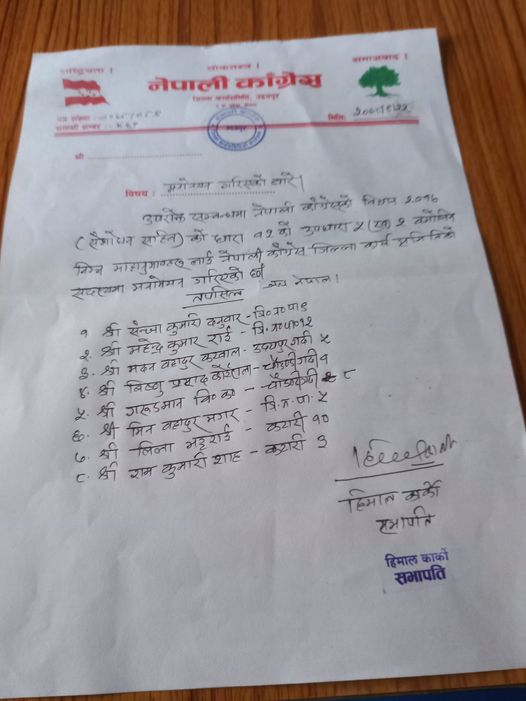 राष्ट्रियता । लोकतन्त्र । समाजवाद ।
नेपाली काँग्रेस
जिल्ला कार्यसमिति, उदयपुर
पत्र संख्या :
चलानी नम्बर :
मिति:
श्री
विषय : मनोनयन गरिएको बारे।
उपरोक्त सम्बन्धमा नेपाली काँग्रेसको विधान २०१७
(संशोधन सहित) को धारा १२ को उपधारा २ बमोजिम
निम्न महानुभावहरु लाई नेपाली काँग्रेस जिल्ला कार्य समितिको
सदस्यमा मनोनयन गरिएको छ। जय नेपाल।
तपसिल
१. श्री सेन्जा कुमारी दनुवार - त्रि.न.पा ९
२. श्री महेन्द्र कुमार राई - त्रि.न.पा १२
३. श्री मदन बहादुर कटवाल - उदयपुरगढी ५
४. श्री बिष्णु प्रसाद कोइराला - चौदण्डीगढी १
५. श्री गरुडमान वि.क. - चौदण्डीगढी ८
६. श्री मित्र बहादुर मगर - त्रि.न.पा. ५
७. श्री लिला राई - कटारी १०
८. श्री राम कुमारी शाह - कटारी ३
हिमाल कार्की
सभापति
हिमाल कार्की
सभापति